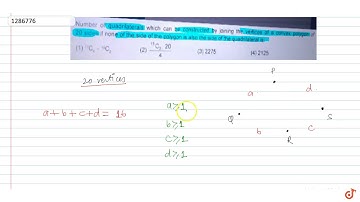 1286776
Number of quadrilaterals which can be constructed by joining the vertices of a convex polygon of
20 sides if none of the side of the polygon is also the side of the quadrilateral is
(1) ¹⁷C₄ - ¹⁵C₂ (2) ¹⁵C₃ 20 / 4 (3) 2275 (4) 2125
20 vertices
a+b+c+d = 16
a ≥ 1,
b ≥ 1
c ≥ 1
d ≥ 1
P
a d
Q S
b c
R